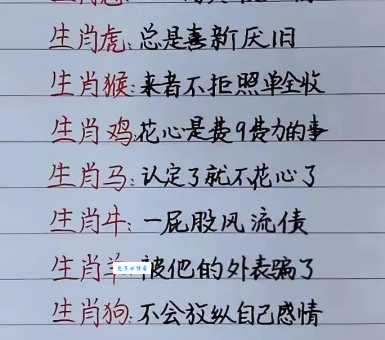 生肖虎:总是喜新厌旧
生肖猴:来者不拒照单全收
生肖鸡:花心是费9费力的事
生肖马:认定了就不花心了
生肖牛:一屁股风流债
生肖羊 被他的外表骗了
生肖狗:不会放纵自己感情